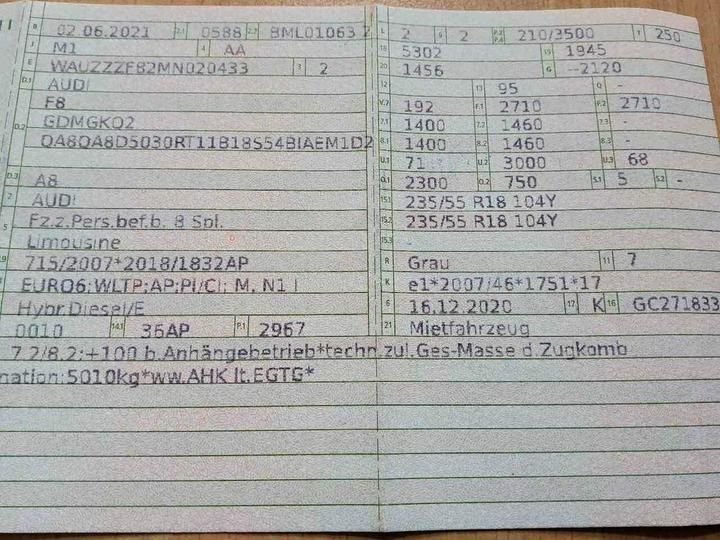 B 02.06.2021 2.1 0588 2.2 BML01063 2
J M1 4 AA
E WAUZZZF82MN020433 3 2
D.1 AUDI
F8
D.2 GDMGKQ2
QA8QA8D5030RT11B18S54BIAEM1D2
D.3 A8
2 AUDI
5 Fz.z.Pers.bef.b. 8 Spl.
Limousine
715/2007*2018/1832AP
EURO6;WLTP;AP;PI/CI; M, N1 I
Hybr.Diesel/E
0010 14.1 36AP P.1 2967
L 2 9 2 P.2 P.4 210/3500 T 250
18 5302 19 1945
20 1456 G --2120
12 13 95 Q -
V.7 192 F.1 2710 F.2 2710
7.1 1400 7.2 1460 7.3 -
8.1 1400 8.2 1460 8.3 -
U.1 71 U.2 3000 U.3 68
O.1 2300 O.2 750 S.1 5 S.2 -
15.1 235/55 R18 104Y
15.2 235/55 R18 104Y
15.3 -
R Grau 11 7
K e1*2007/46*1751*17
6 16.12.2020 17 K 16 GC271833
21 Mietfahrzeug
7.2/8.2:+100 b.Anhängebetrieb*techn.zul.Ges-Masse d.Zugkomb
nation:5010kg*ww.AHK lt.EGTG*